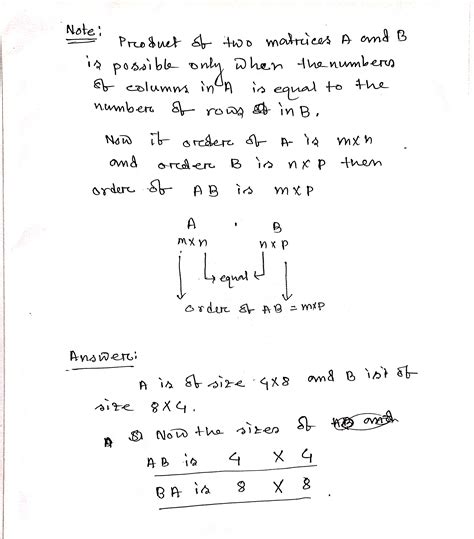 Note:
Product of two matrices A and B
is possible only when the numbers
of columns in A is equal to the
numbers of rows in B.
Now if orders of A is m×n
and order B is n×p then
order of AB is m×p
A . B
m×n n×p
equal
order of AB = m×p
Answer:
A is of size 4×8 and B is of
size 8×4.
Now the sizes of
AB is 4 × 4
BA is 8 × 8